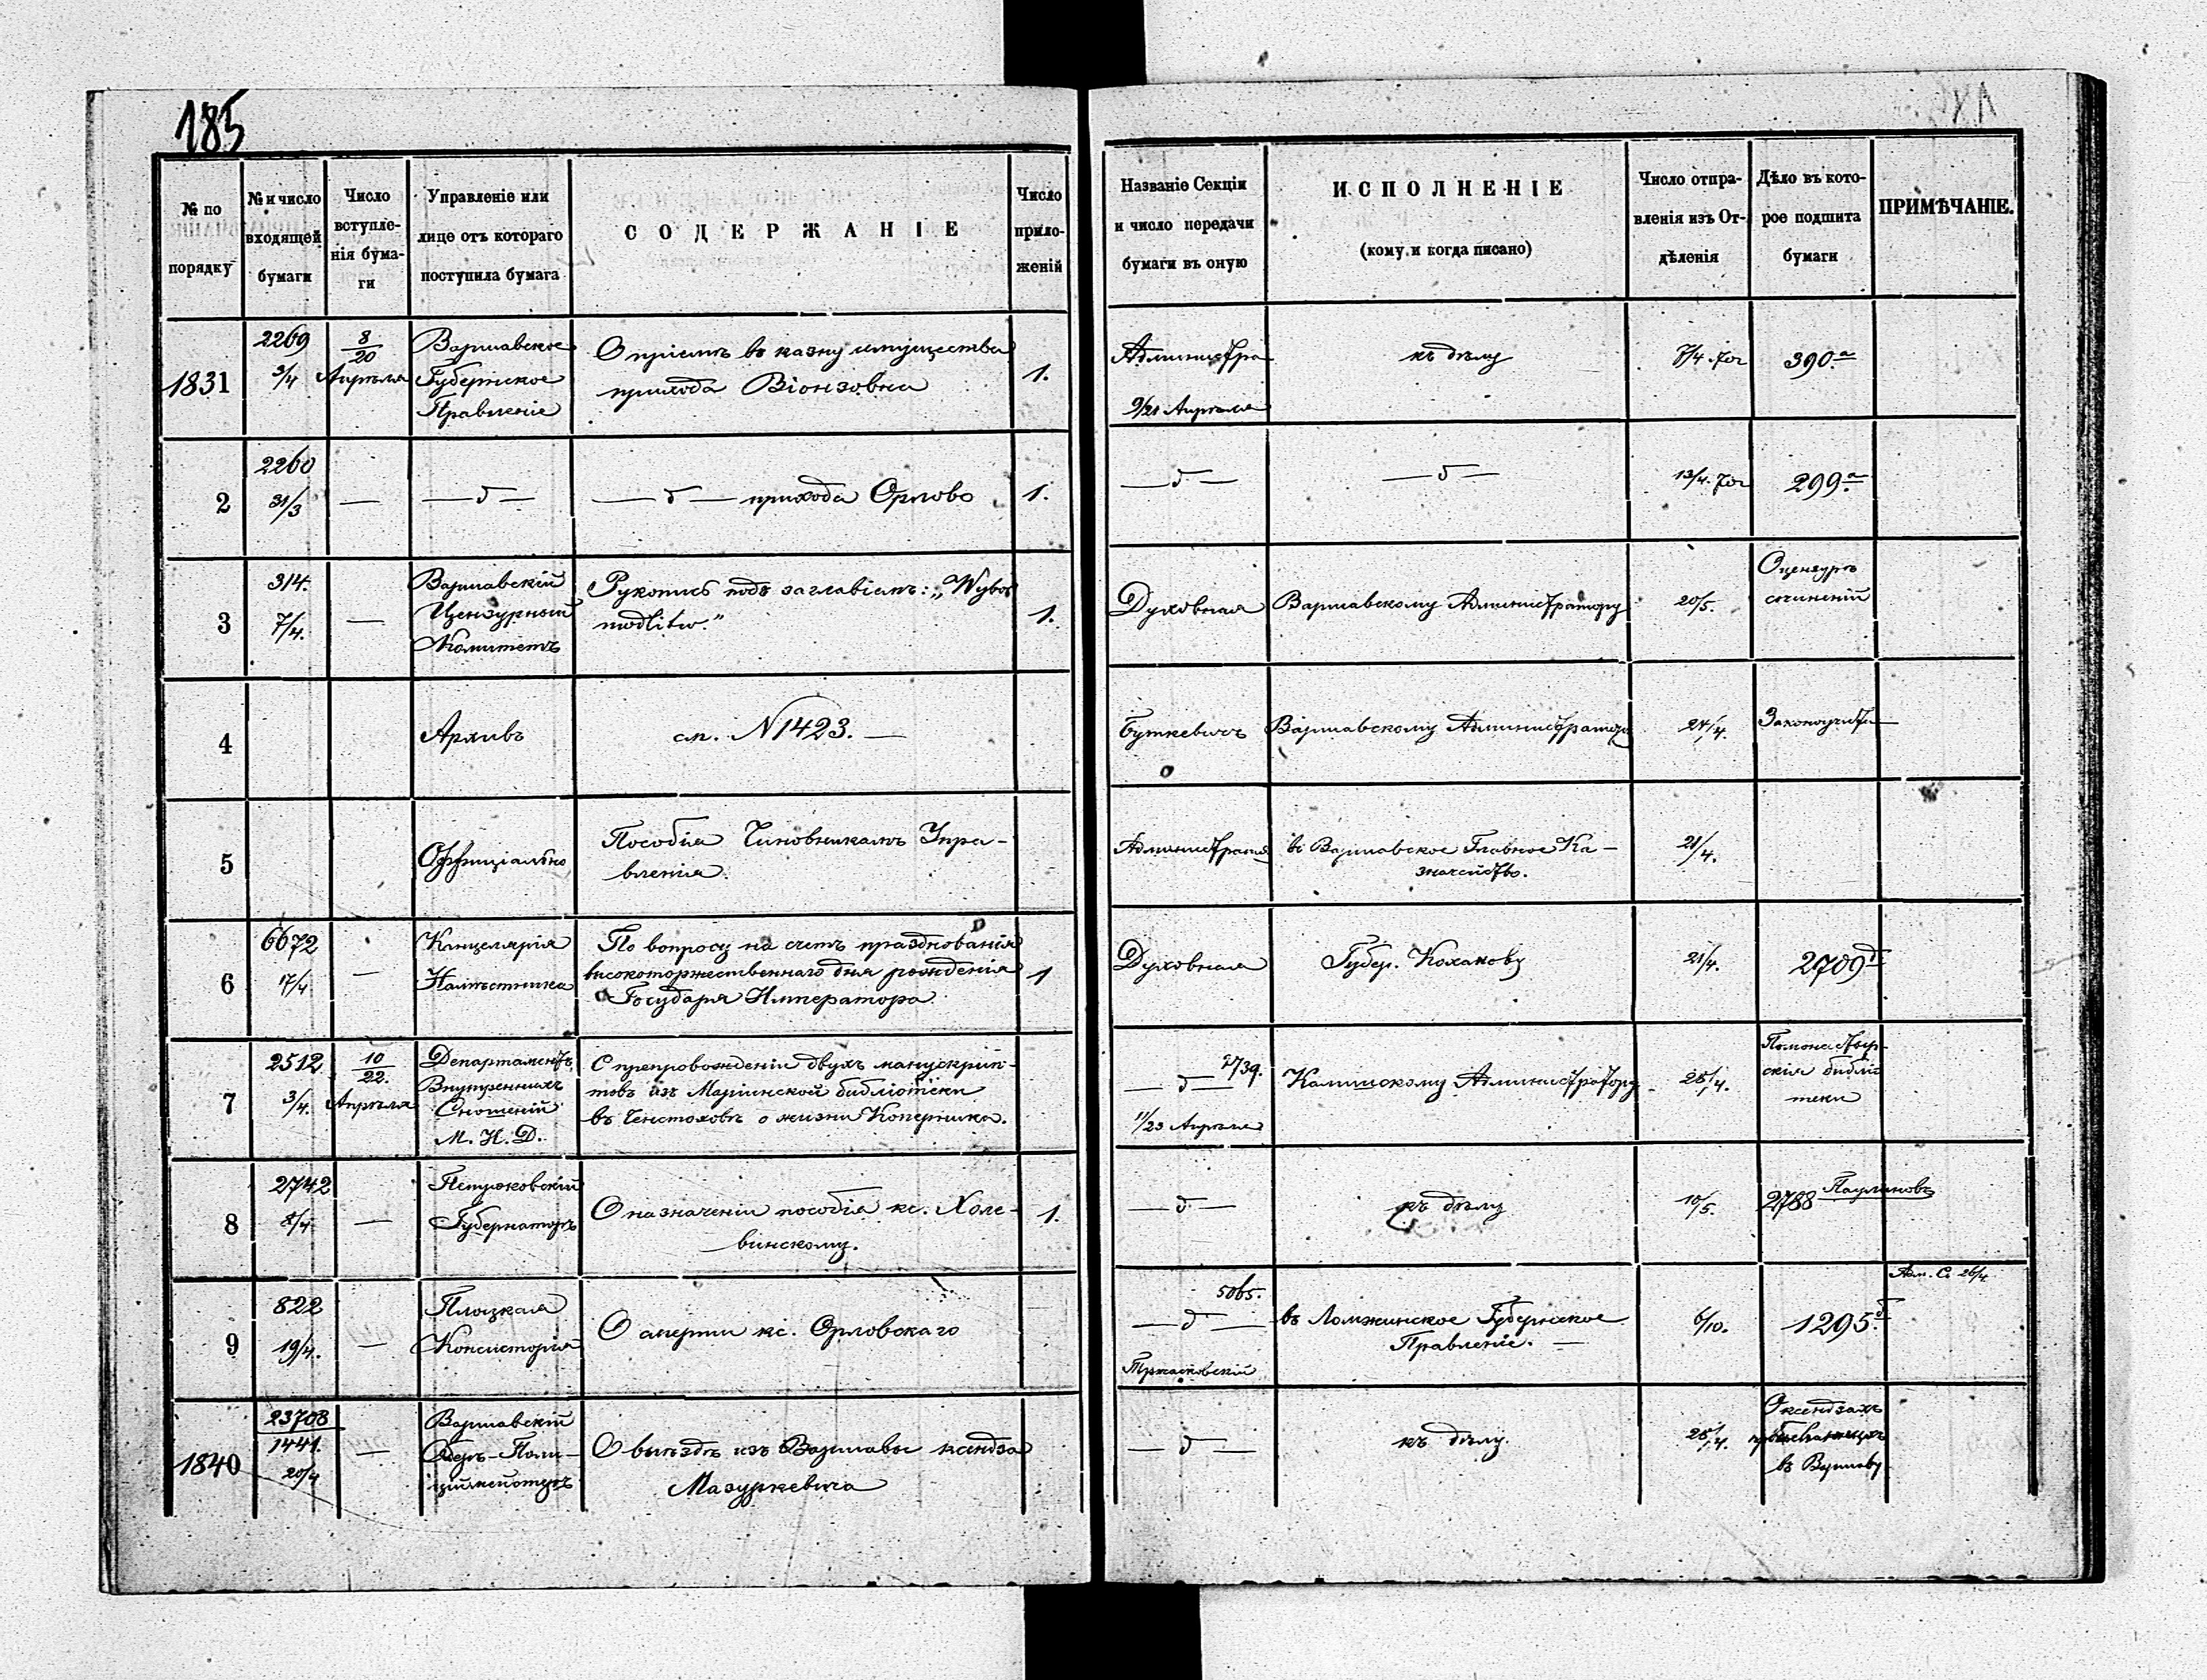 185
№ по
порядку
№ и число
входящей
бумаги
Число
вступле-
нія бума-
ги
Управленіе или
лице отъ котораго
поступила бумага
СОДЕРЖАНІЕ
Число
прило-
женій
Названіе Секціи
и число передачи
бумаги въ оную
ИСПОЛНЕНІЕ
(кому и когда писано)
Число отпра-
вленія изъ От-
дѣленія
Дѣло въ кото-
рое подшита
бумаги
ПРИМѢЧАНІЕ.
1831
2269
3/4
8/20
Апрѣля
Варшавское
Губернское
Правленіе
О пріемѣ въ казну имущества
прихода Віонзовна
1.
Администра
9/21 Апрѣля
къ дѣлу
7/4.
390.а
2
2260
31/3
—
— д —
— д — прихода Орлово
1.
— д —
— д —
13/4.
299.а
3
314.
7/4.
—
Варшавскій
Цензурный
Комитетъ
Рукопись подъ заглавіемъ: „Wybor
modlitw."
1.
Духовная
Варшавскому Администратору
20/5.
О цензурѣ
сочиненій
4
Архивъ
см. N 1423. —
Буткевичъ
Варшавскому Администратору
24/4.
Законоучители
5
Оффиціально
Пособія Чиновникамъ Упра-
вленія.
Администрат
въ Варшавское Главное Ка-
значейство.
21/4.
6
6672
17/4
—
Канцелярія
Намѣстника
По вопросу на счетъ празднованія
высокоторжественнаго дня рожденія
Государя Императора
1
Духовная
Губер. Коханову
21/4.
2709 д
7
2512
3/4.
10/22.
Апрѣля
Департаментъ
Внутреннихъ
Сношеній
М. И. Д.
С препровожденіи двухъ манускрип-
товъ изъ Маріинской библіотеки
въ Ченстоховѣ о жизни Коперника.
1739.
— д —
11/23 Апрѣля
Калишскому Администратору
25/4.
Помонастыр-
скія библіо
теки
8
2742
8/4
—
Петроковскій
Губернаторъ
О назначеніи пособія кс. Холе-
винскому.
1.
— д —
къ дѣлу
10/5.
2788 Паулиновъ
9
822
19/4.
—
Плоцкая
Консисторія
О смерти кс. Орловскаго
5065.
— д —
Тржасковскій
въ Ломжинское Губернское
Правленіе. —
6/10.
1295.б
Адм. С. 26/4
1840
23708
1441.
20/4
—
Варшавскій
Оберъ-Поли-
ціймейстеръ
О выѣздѣ изъ Варшавы ксендза
Мазуркевича
— д —
къ дѣлу.
25/4.
О ксендзахъ
прибывающихъ
въ Варшаву